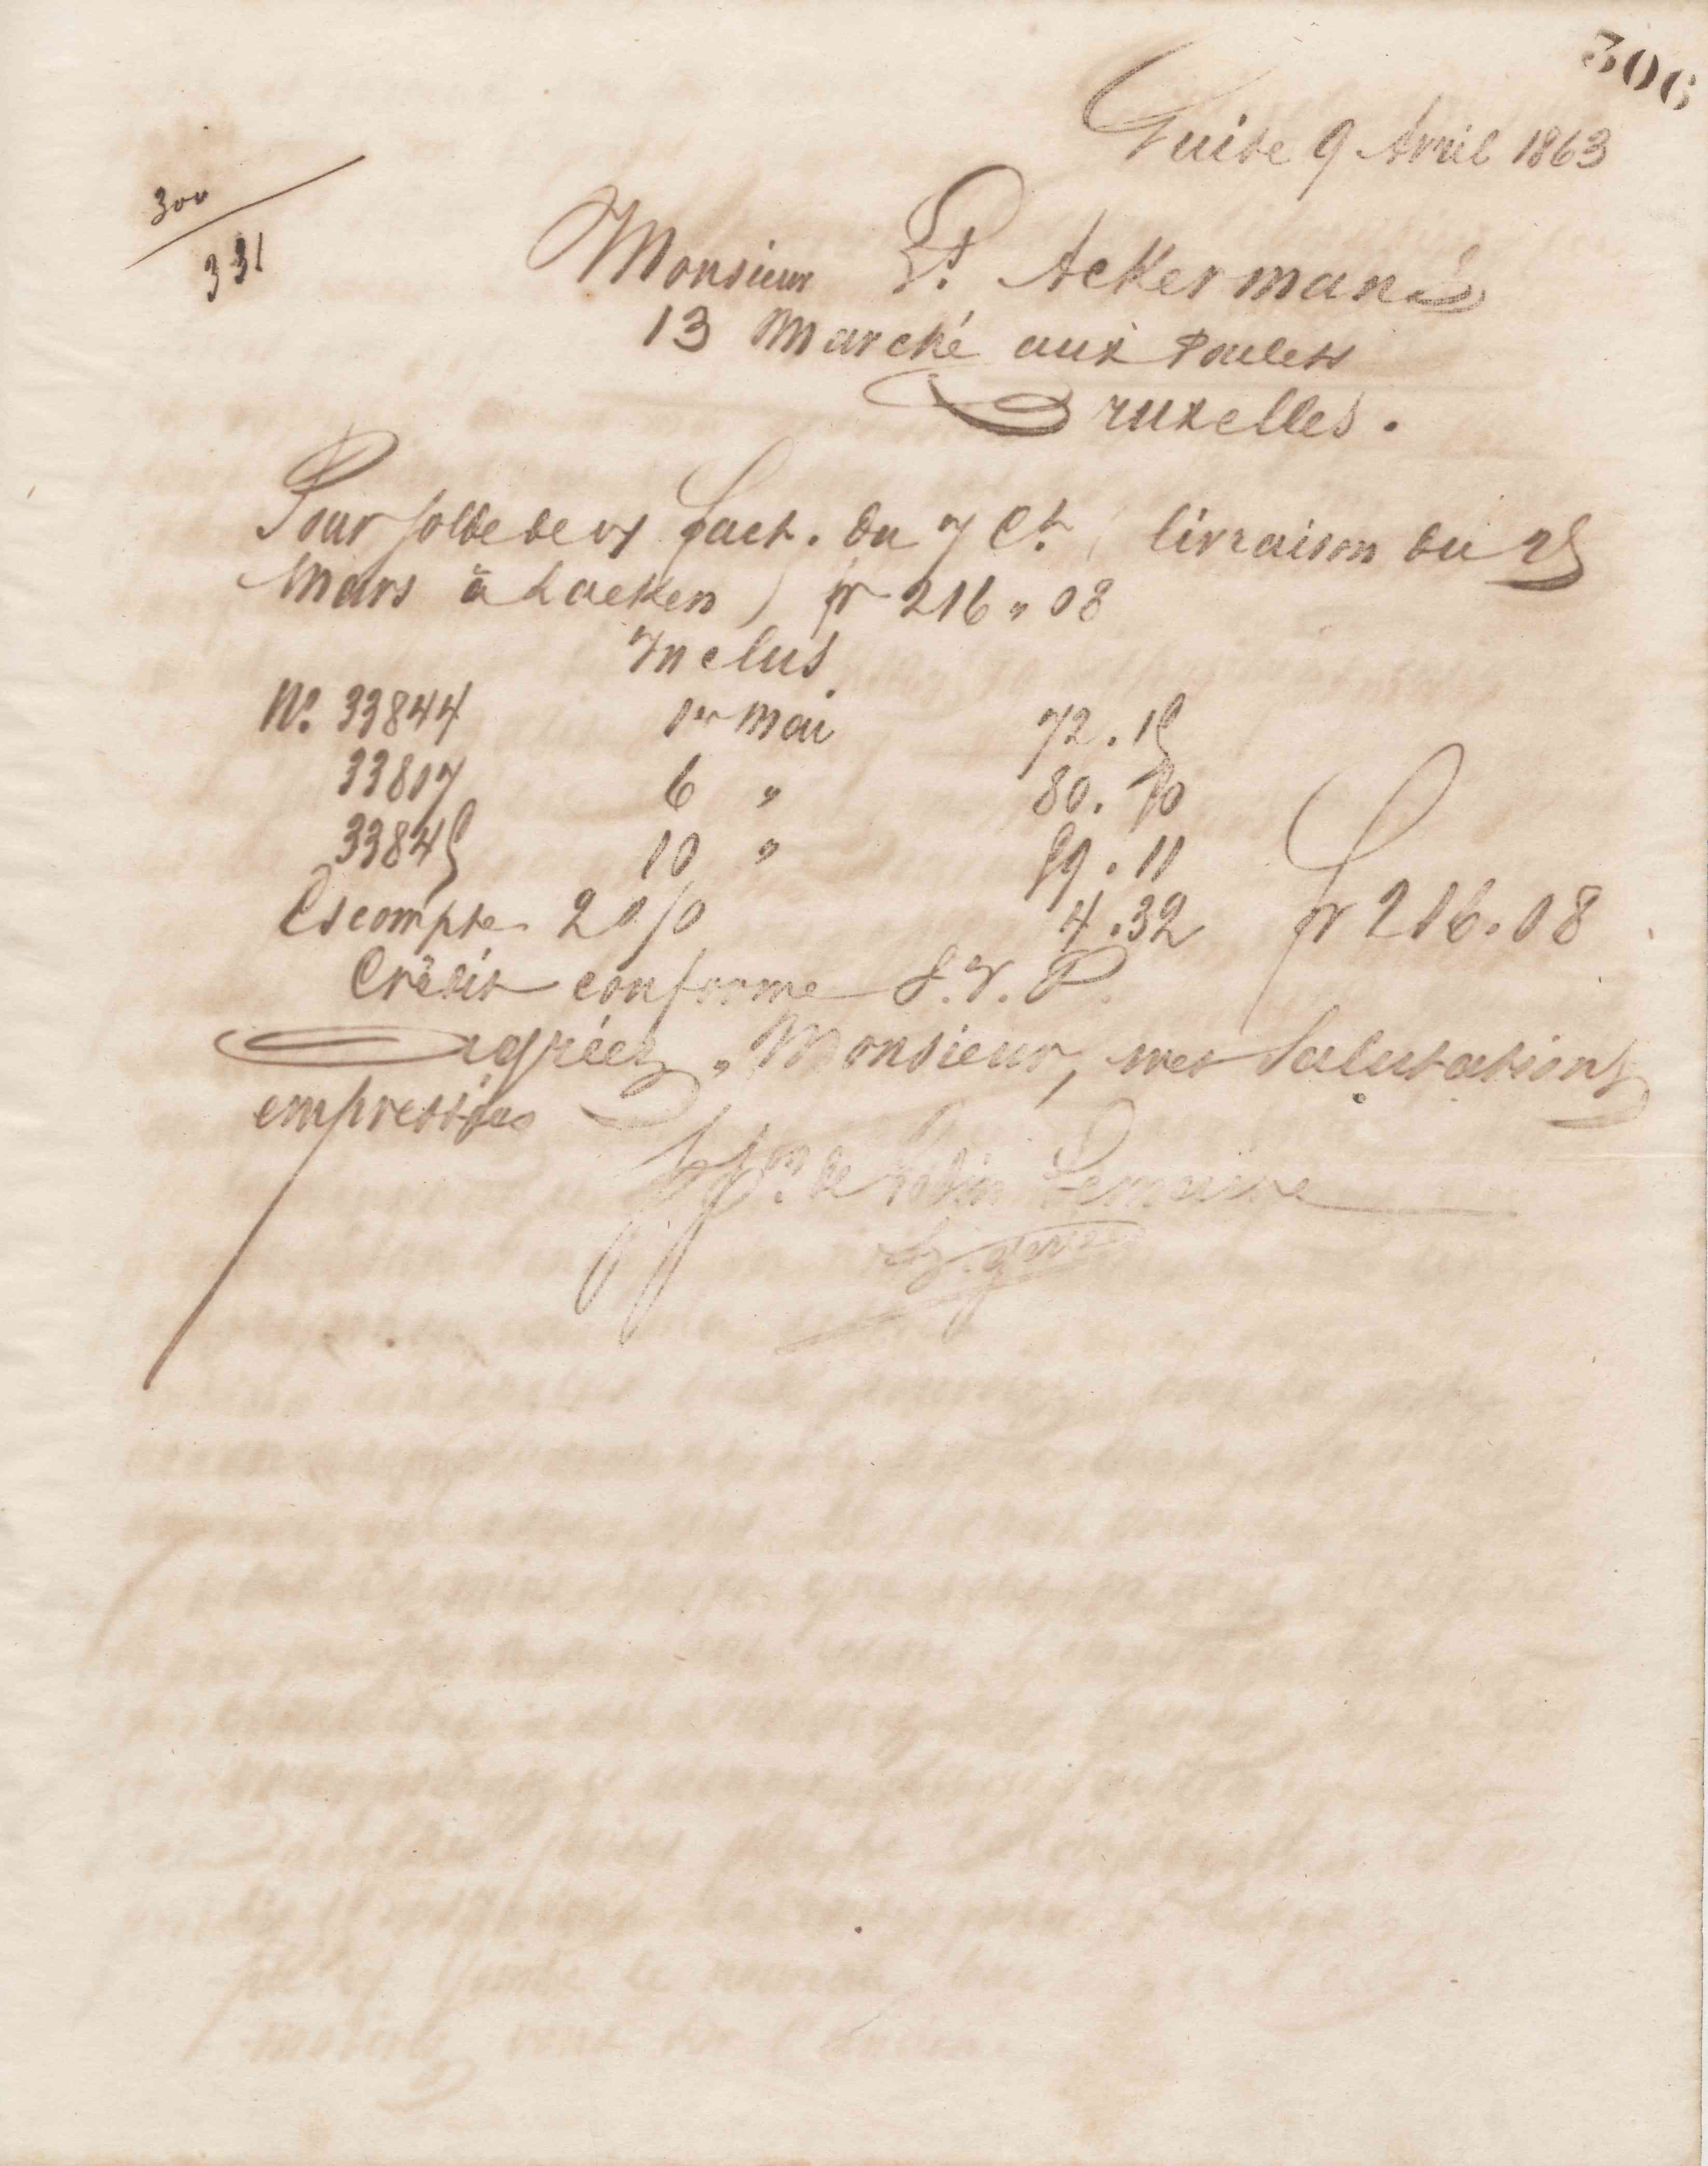 306
Guise 9 Avril 1863
300
331
Monsieur Pt. Ackermans
13 Marché aux Poulets
Bruxelles.
Pour solde de vs fact. du 7 Ct. (livraison du 25
Mars à Laeken) fr 216 " 08
Inclus
N° 33844 1er Mai 72.15
33807 6 " 80.50
33845 10 " 59.11
Escompte 2 0/0 4.32 fr 216.08
Crédit conforme S.V.P.
Agréez, Monsieur, mes salutations
empressées
de Godin Lemaire